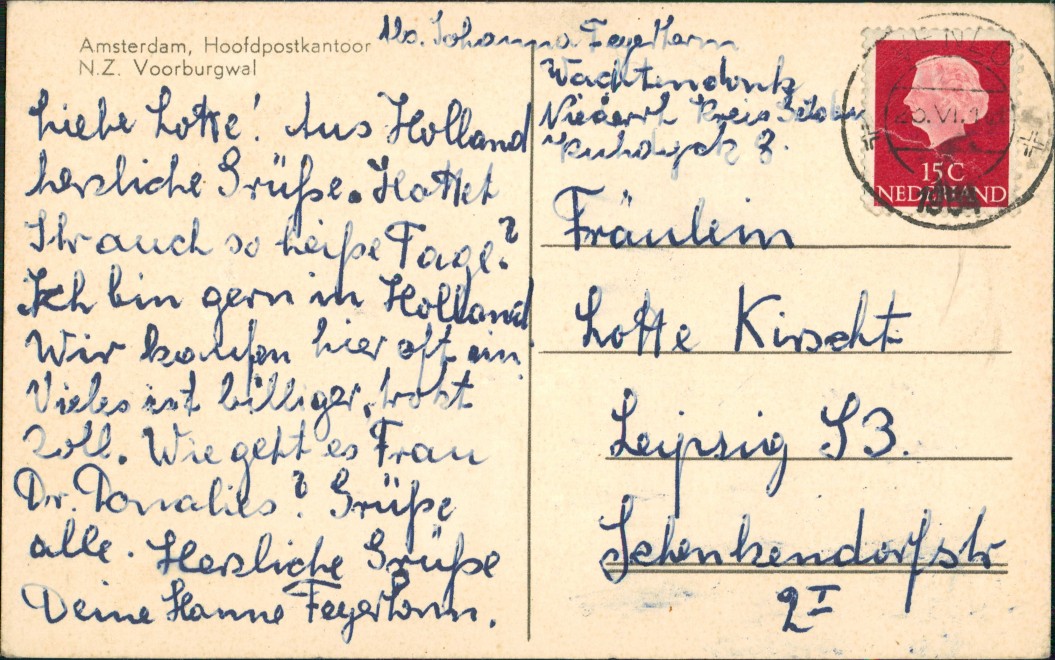 Amsterdam, Hoofdpostkantoor
N.Z. Voorburgwal
Liebe Lotte! Aus Holland
herzliche Grüße. Hattet
Ihr auch so heiße Tage?
Ich bin gern in Holland
Wir kaufen hier oft ein
Vieles ist billiger, trotz
Zoll. Wie geht es Frau
Dr. Donalies? Grüße
alle. Herzliche Grüße
Deine Hanne Feyerhorm.
Abs. Johanna Feyerhorm
Wachtendonk
Niederrh Kreis Geldern
3.
15 C
NEDERLAND
Fräulein
Lotte Kirscht
Leipzig S3.
Schenkendorfstr
2 I